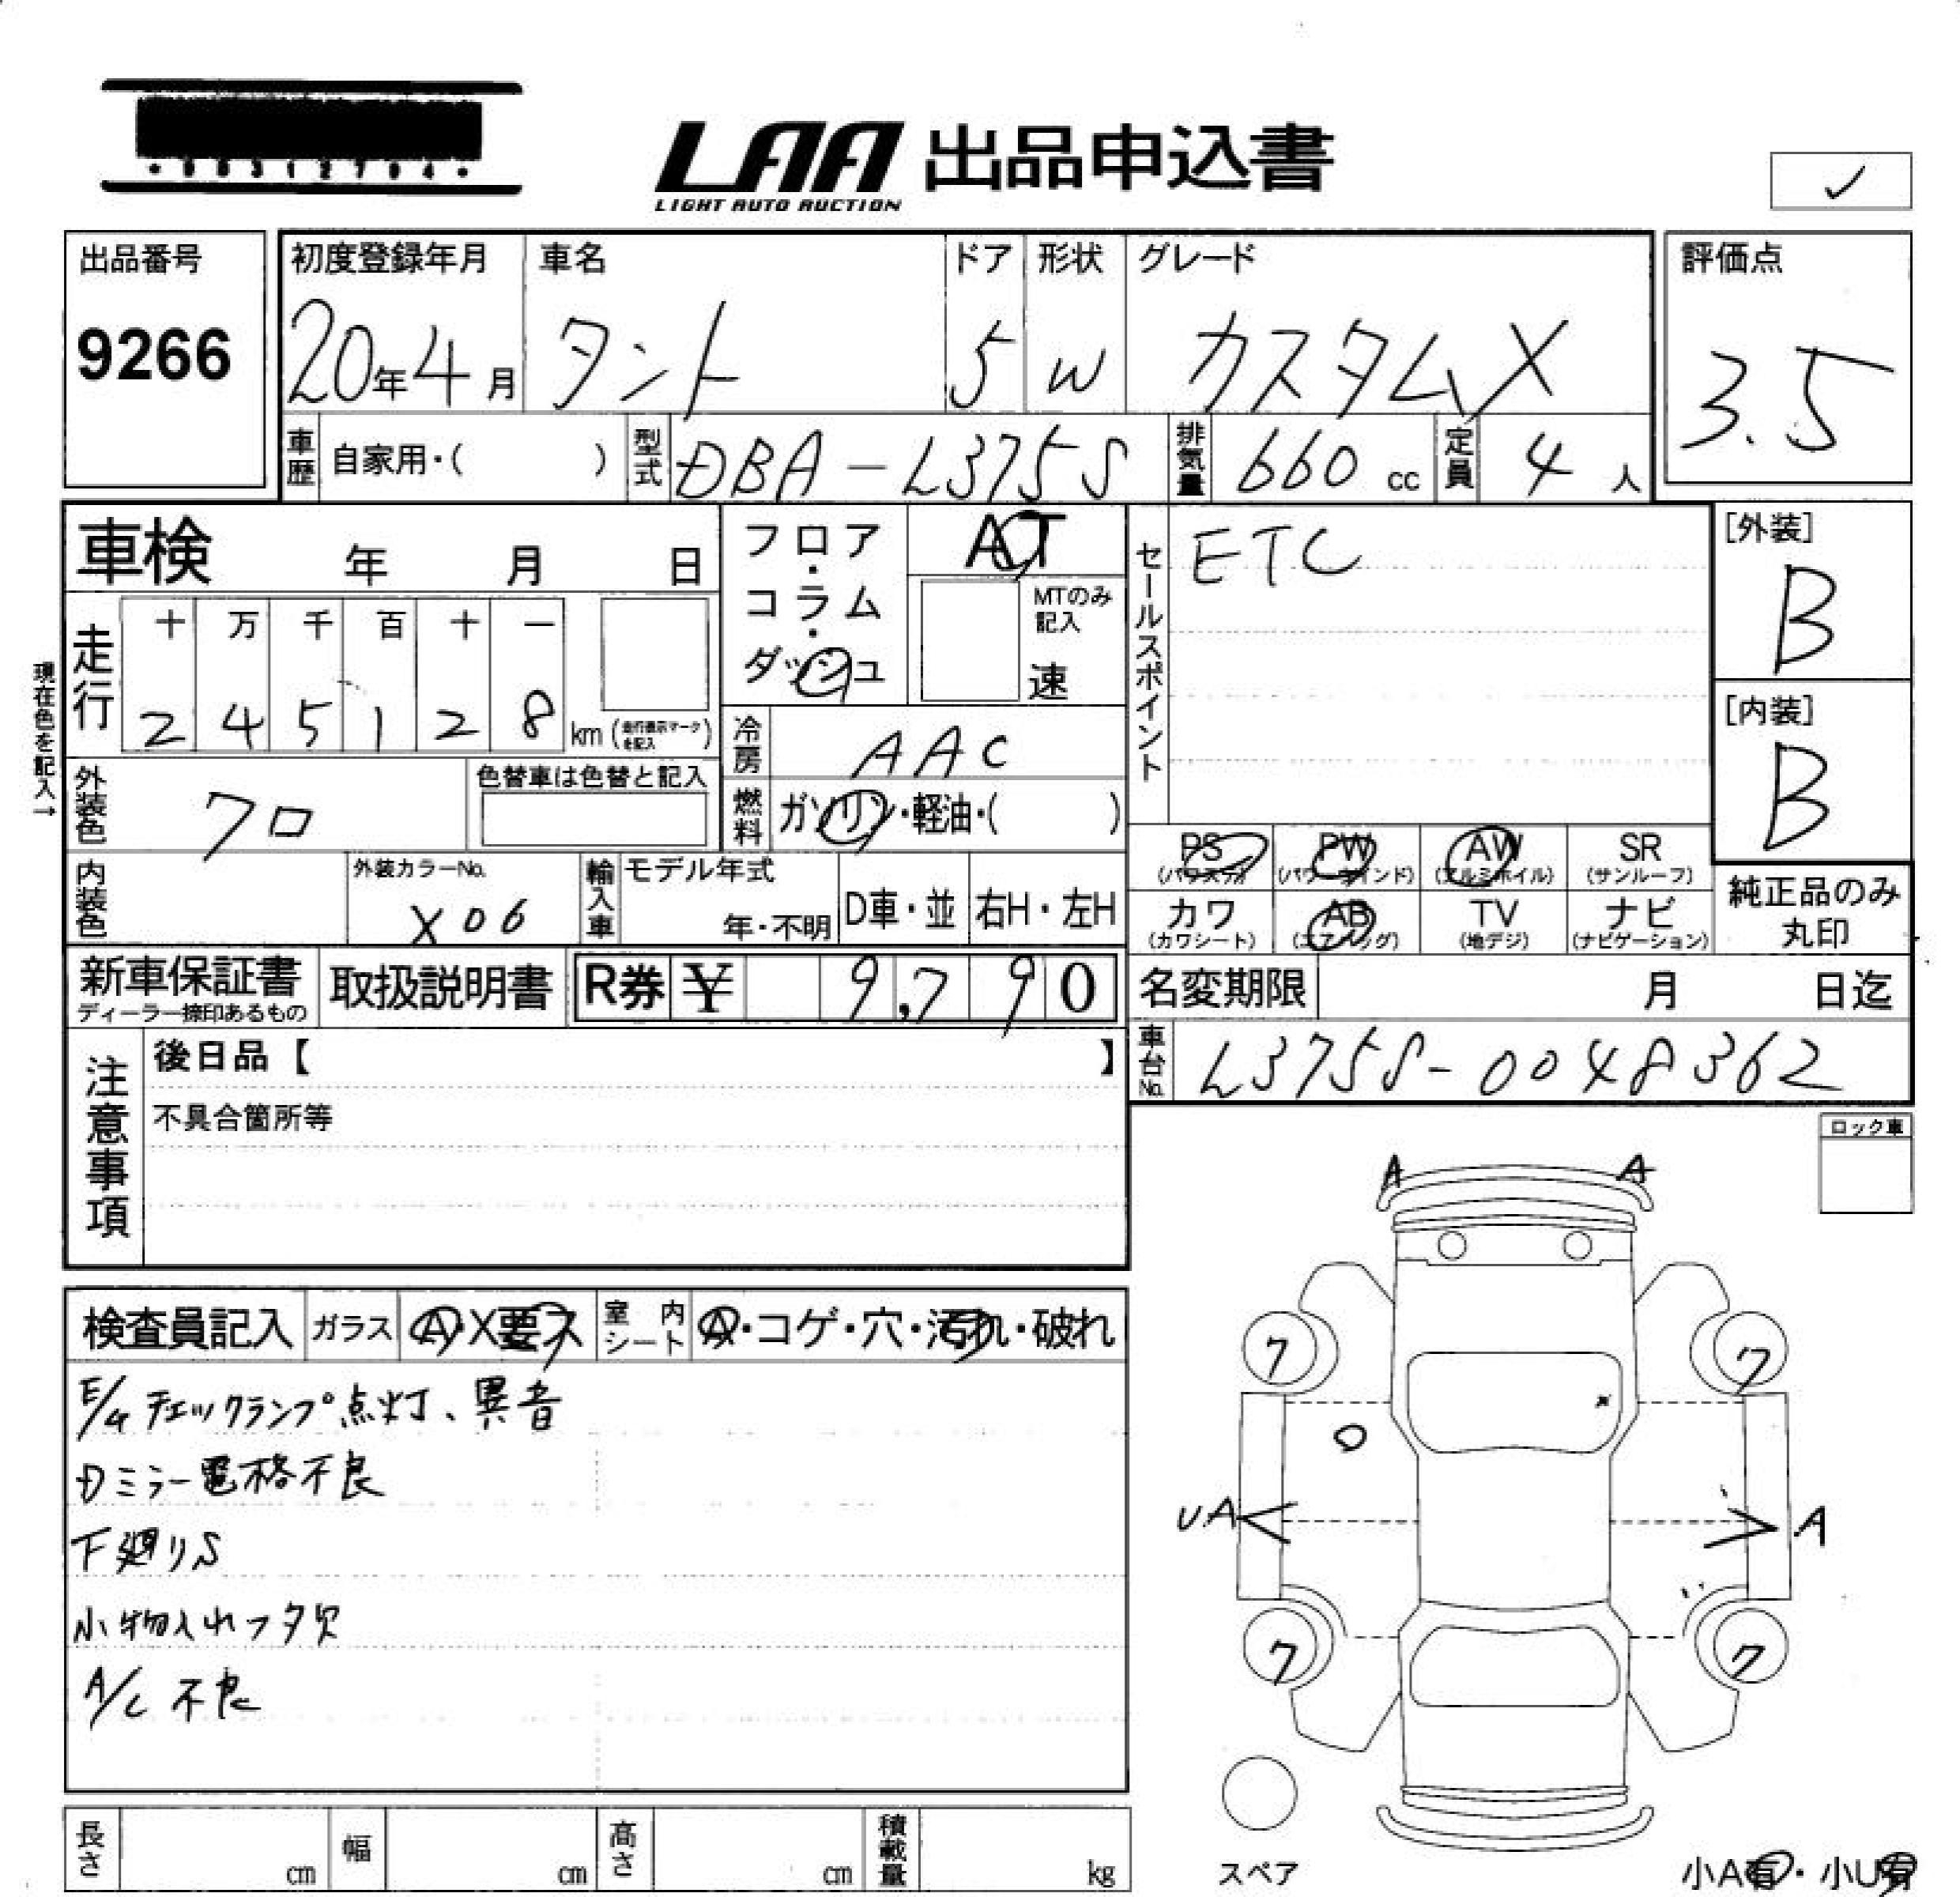 LAA 出品申込書
LIGHT AUTO AUCTION
✓
出品番号
9266
初度登録年月
20年4月
車名
タント
ドア
5
形状
W
グレード
カスタムX
評価点
3.5
車歴 自家用・( )
型式 DBA-L375S
排気量 660 cc
定員 4人
車検 年 月 日
フロア・コラム・ダッシュ
AT
MTのみ記入
速
セールスポイント
ETC
[外装]
B
[内装]
B
現在色を記入→
走行
十 万 千 百 十 一
2 4 5 1 2 8 km (走行表示マークを記入)
冷房 AAC
燃料 ガソリン・軽油・( )
外装色 クロ
色替車は色替と記入
内装色
外装カラーNo.
X06
輸入車
モデル年式
年・不明
D車・並
右H・左H
PS (パワステ)
PW (パワーウインド)
AW (アルミホイル)
SR (サンルーフ)
カワ (カワシート)
AB (エアバッグ)
TV (地デジ)
ナビ (ナビゲーション)
純正品のみ
丸印
新車保証書
ディーラー捺印あるもの
取扱説明書
R券 ¥ 9,790
名変期限 月 日迄
車台No. L375S-0048362
注意事項
後日品【 】
不具合箇所等
ロック車
検査員記入
ガラス A・X要ス
室内シート A・コゲ・穴・汚れ・破れ
E/G チェックランプ点灯、異音
Dミラー電格不良
下廻りS
小物入れフタ欠
A/C 不良
A A
7 7
UA A
7 7
スペア
小A有・小U有
長さ cm
幅 cm
高さ cm
積載量 kg